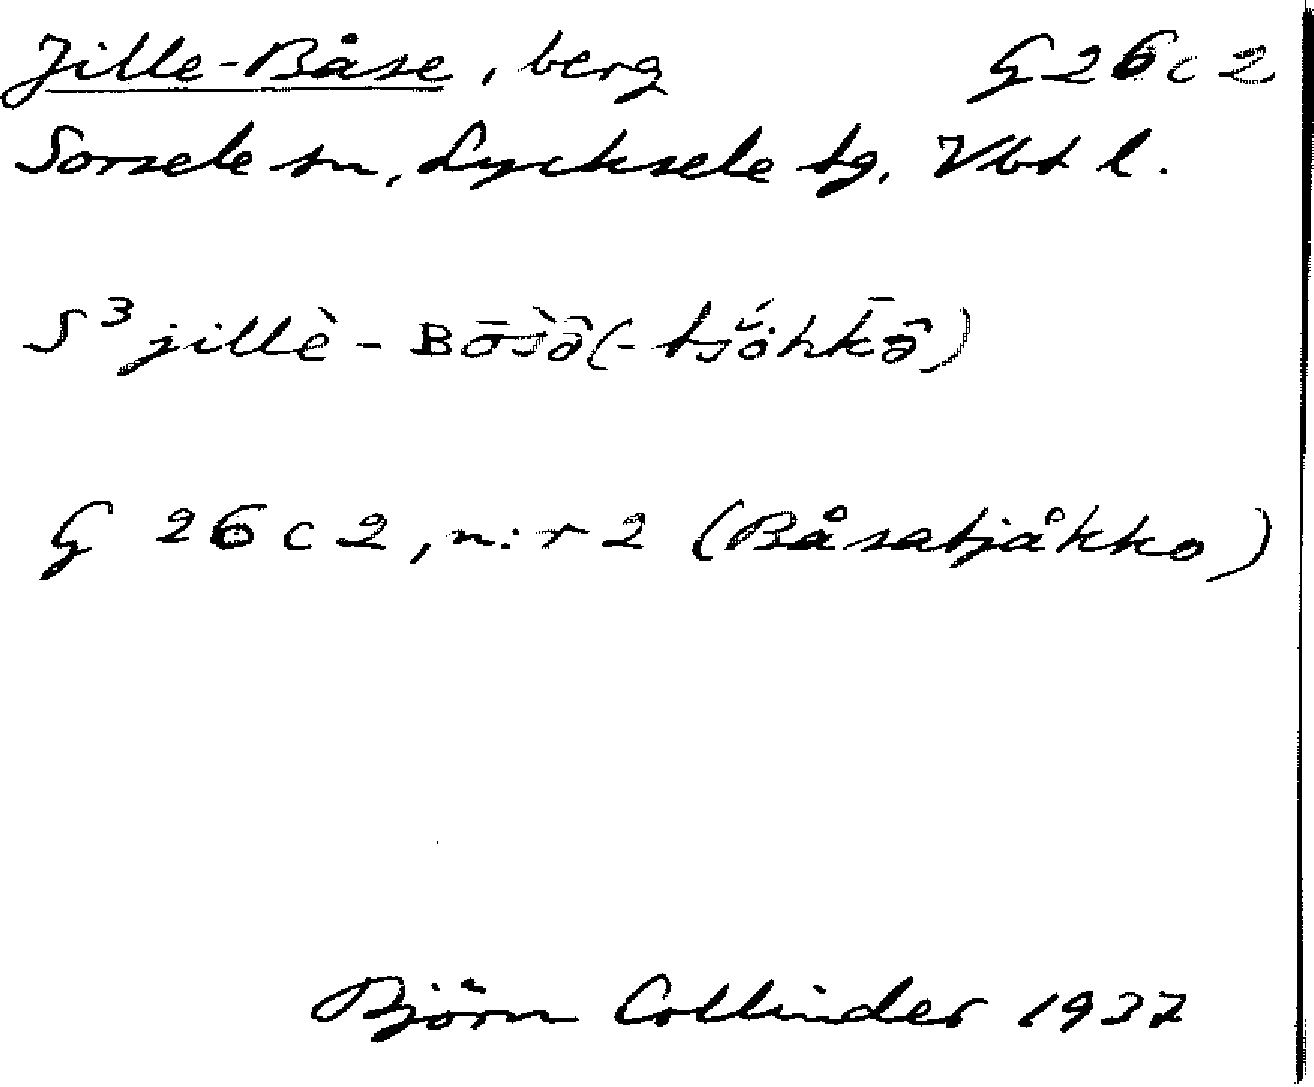 Jille-Båse, berg G26c2
Sorsele sn, Lycksele tg, Vbt l.
S³ jillè - Bōsə̂(- tsŏ́hk̄ə̂)
G 26 c 2, n:r 2 (Båsatjåkko)
Björn Collinder 1937